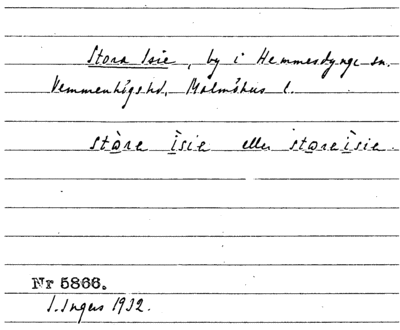 Stora Isie, by i Hemmesdynge sn.
Vemmenhögs hd. Malmöhus l.
stàre ìsie eller stareìsie.
Nr 5866.
I. Ingers 1932.